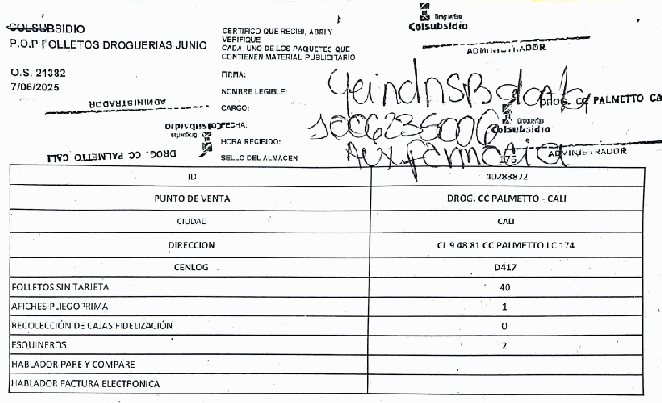 COLSUBSIDIO
P.O.P FOLLETOS DROGUERIAS JUNIO
O.S. 21382
7/06/2025
CERTIFICO QUE RECIBI, ABRI Y
VERIFIQUE
CADA UNO DE LOS PAQUETES QUE
CONTIENEN MATERIAL PUBLICITARIO
FIRMA:
NOMBRE LEGIBLE:
CARGO:
FECHA:
HORA RECIBIDO:
SELLO DEL ALMACEN
Droguería
Colsubsidio
ADMINISTRADOR
DROG. CC PALMETTO CA
Droguería
Colsubsidio
175
ADMINISTRADOR
ADMINISTRADOR
Colsubsidio
Droguería
DROG. CC PALMETTO CALI
Aux farmacia
ID 10283872
PUNTO DE VENTA DROG. CC PALMETTO - CALI
CIUDAD CALI
DIRECCION CL 9 48 81 CC PALMETTO LC 174
CENLOG D417
FOLLETOS SIN TARJETA 40
AFICHES PLIEGO PRIMA 1
RECOLECCIÓN DE CAJAS FIDELIZACIÓN 0
ESQUINEROS 2
HABLADOR PAFE Y COMPARE
HABLADOR FACTURA ELECTRONICA